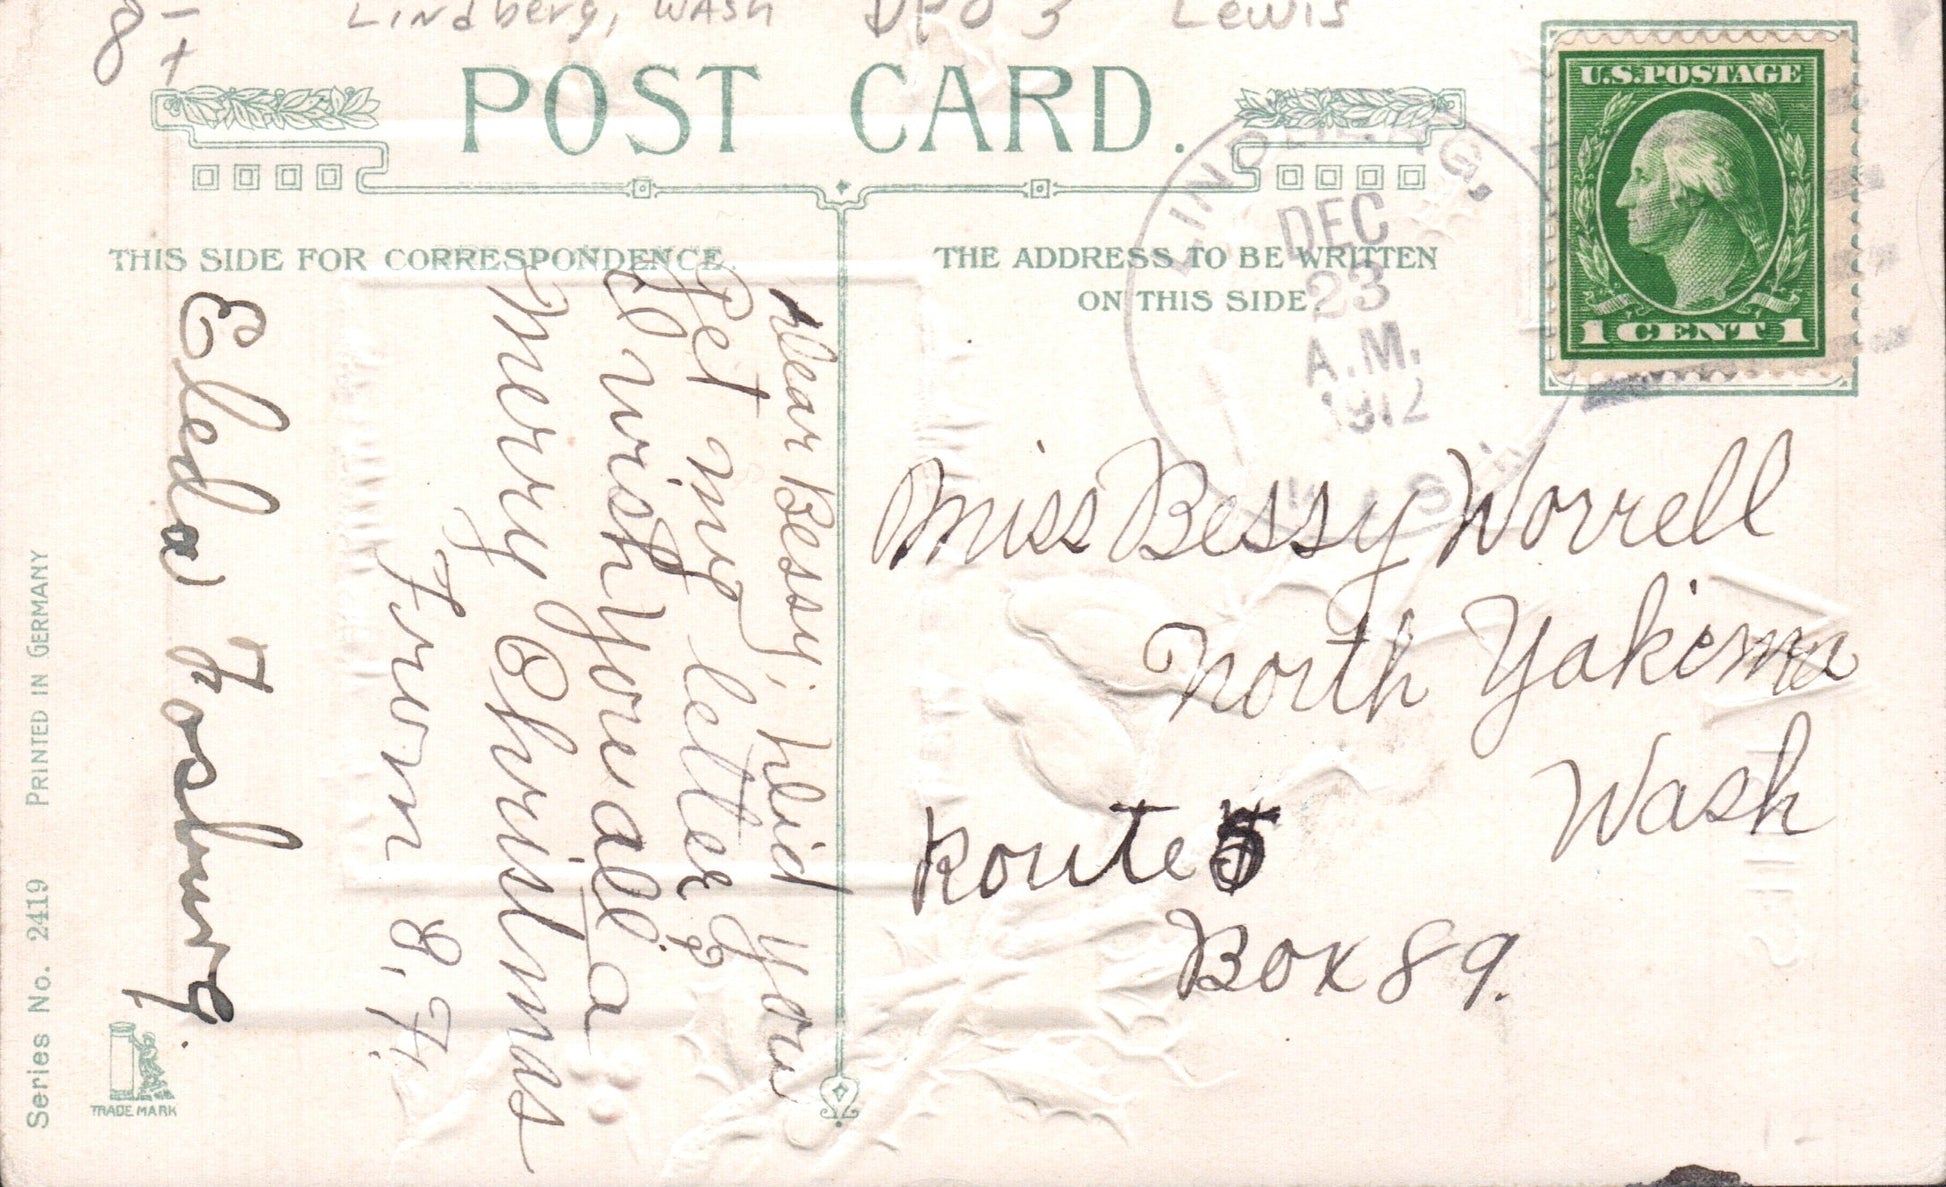 8 -
+
Lindberg, Wash DPO 3 Lewis
POST CARD.
THIS SIDE FOR CORRESPONDENCE
THE ADDRESS TO BE WRITTEN
ON THIS SIDE
LINDBERG,
DEC
23
A.M.
1912
WASH.
U.S.POSTAGE
1 CENT 1
Dear Bessy, Did you
Get my letter?
I wish you all a
Merry Christmas
From E.F.
Eleda Fosburg.
Miss Bessy Worrell
North Yakima
Wash
Route 5
Box 89.
Series No. 2419 PRINTED IN GERMANY
TRADE MARK